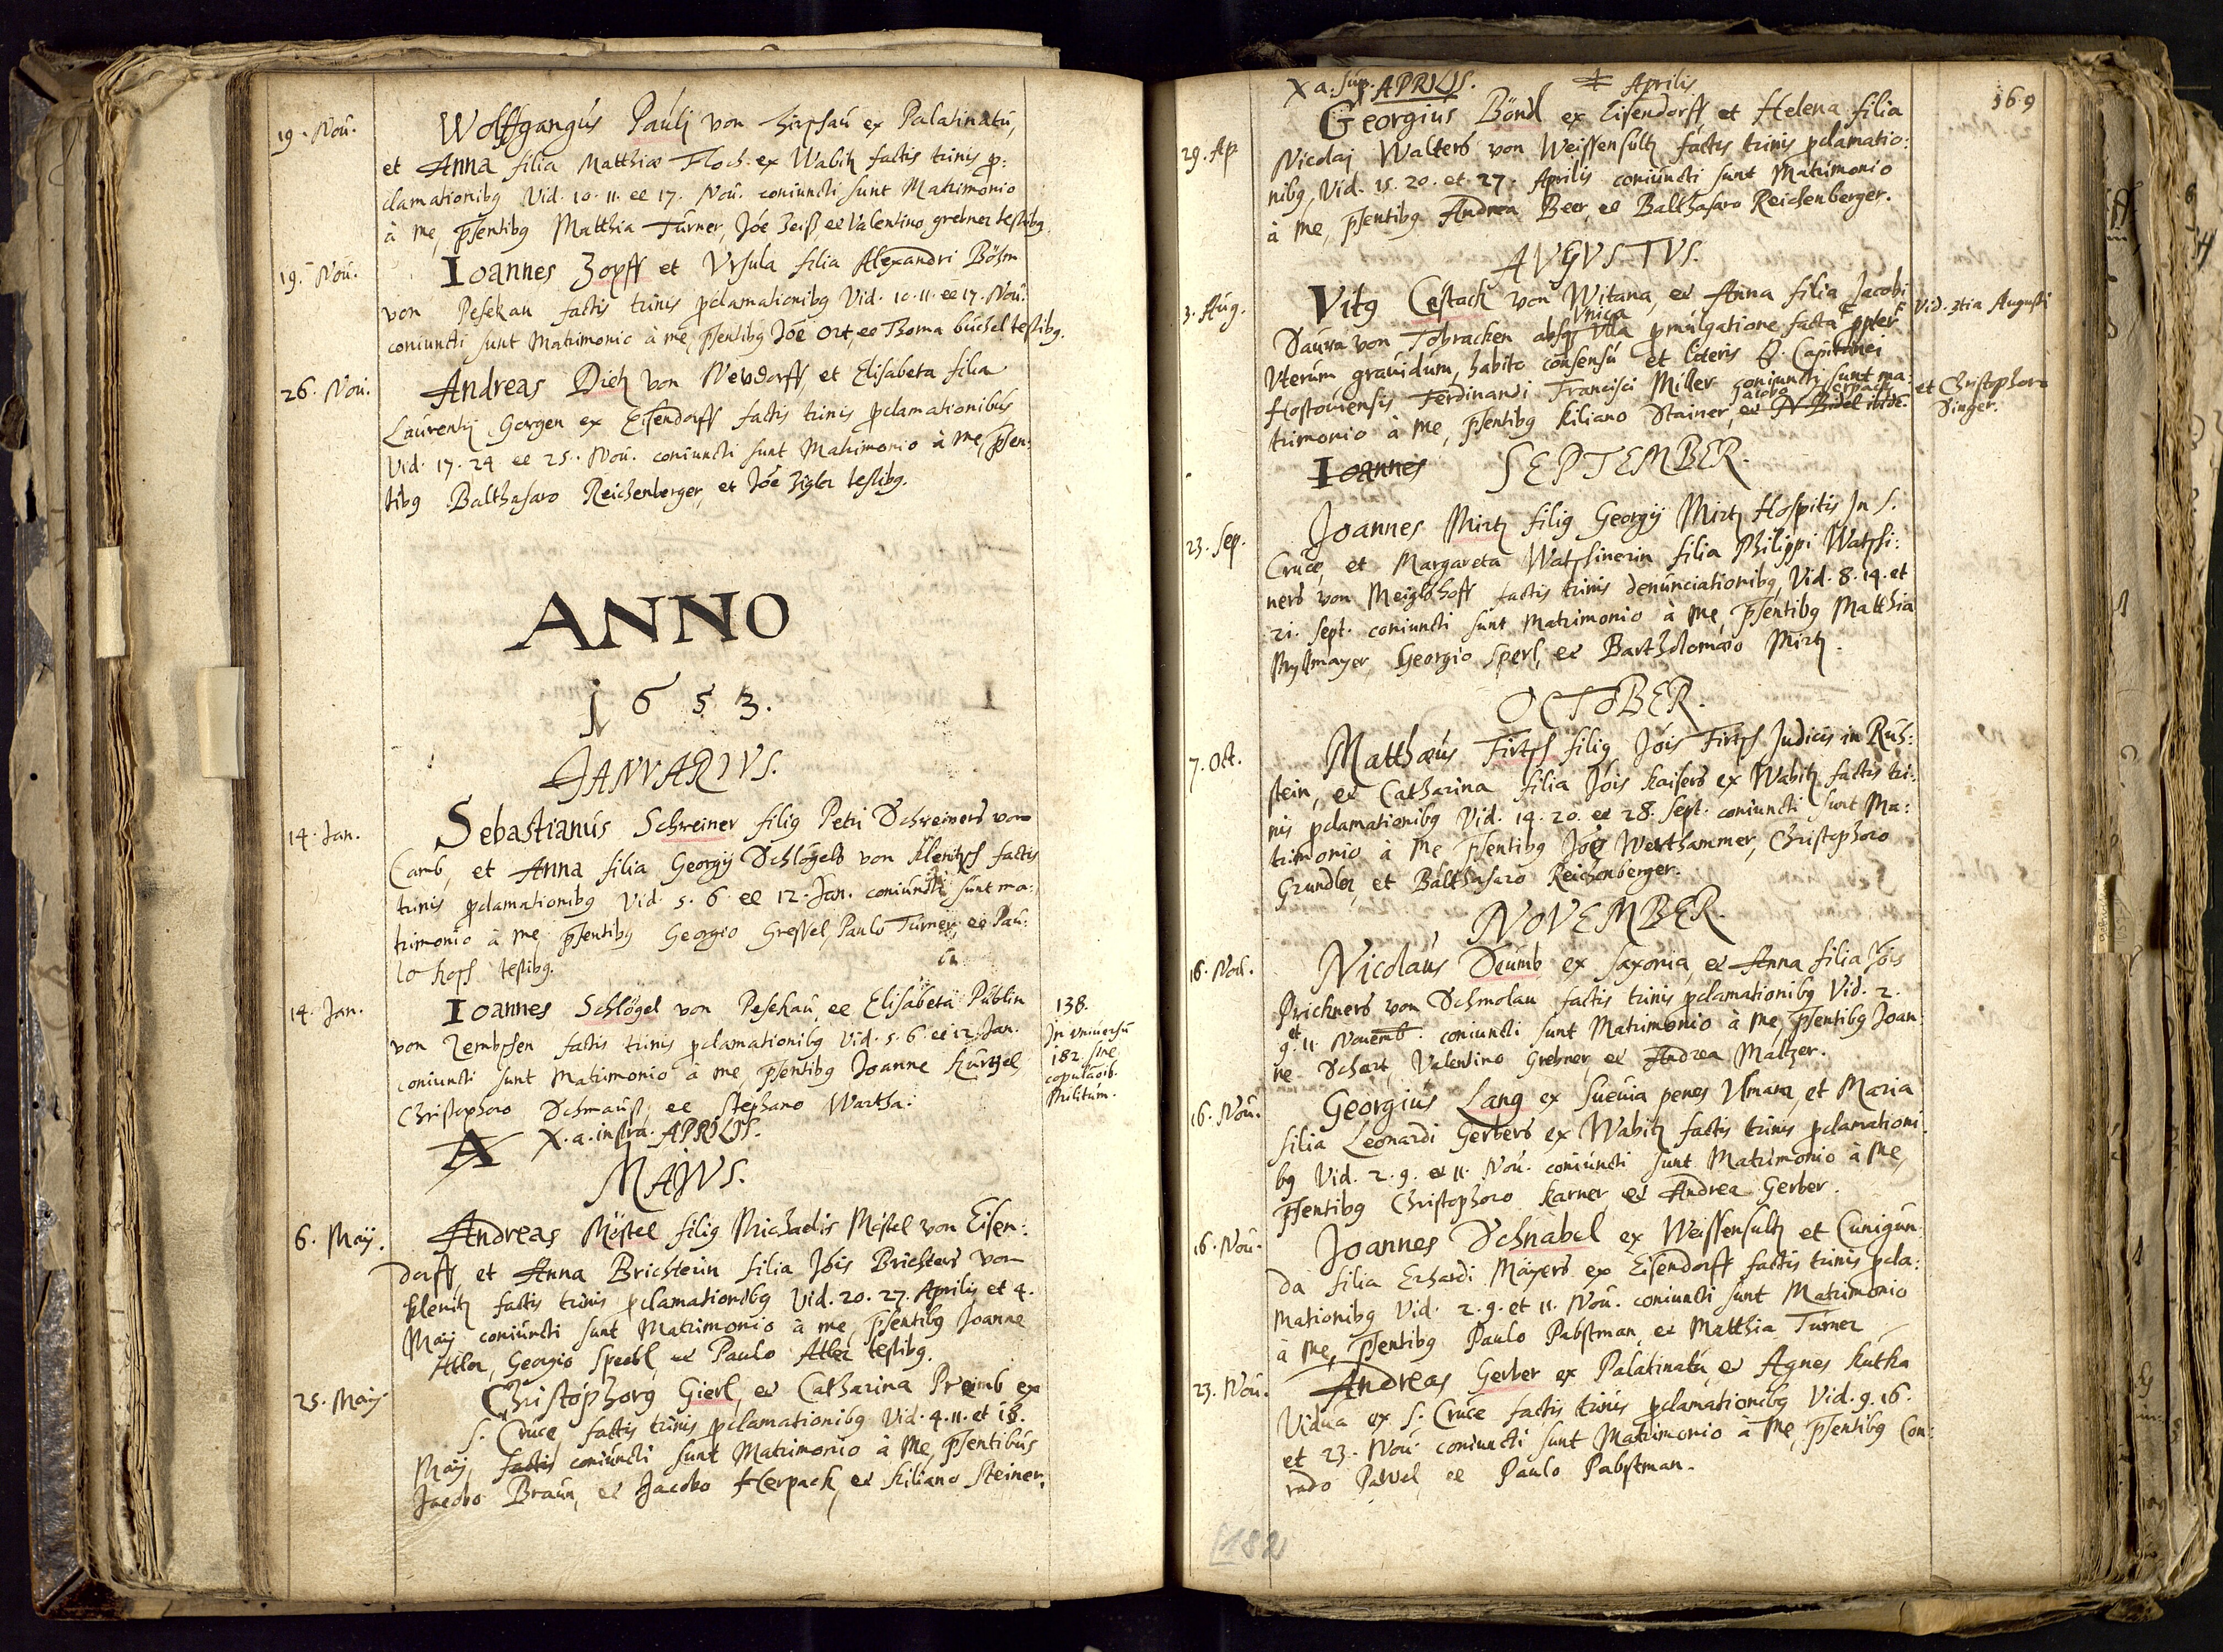 19. Nou. Wolffgangus Paulj von Hirsau ex Palatinatu,
et Anna filia Matthiæ Floch ex Wabitz factis trinis p:
clamationibg Vid. 10. 11. et 17. Nou. coniuncti sunt Matrimonio
à me, psentibg Matthia Turner, Jóe Zeiß et Valentino grebner testibg
19. Nou. Ioannes Zopff et Vrsula filia Alexandri Böhm
von Pesekau factis trinis pclamationibg Vid. 10. 11. et 17. Nou.
coniuncti sunt Matrimonio à me, psentibg Jóe Ort, et Thoma büchel testibg.
26. Nou. Andreas Dietz von Neudorff, et Elisabeta filia
Laurentij Gorgen ex Eisendorff factis trinis pclamationibus
Vid. 17. 24 et 25. Nou. coniuncti sunt Matrimonio à me, psen:
tibg Balthasaro Reichenberger, et Jóe Zigler testibg.
ANNO
1653.
JANVARIVS.
14. Jan. Sebastianus Schreiner filig Petri Schreiners von
Camb, et Anna filia Georgij Schlögels von Klentsch factis
trinis pclamationibg Vid. 5. 6 et 12. Jan. coniuncti sunt ma:
trimonio à me psentibg Georgio Gressel, Paulo Turner, et Pau:
lo Hopf testibg.
14. Jan. Ioannes Schlögel von Pesekau, et Elisabeta Publin
von Zembschen factis trinis pclamationibg Vid. 5. 6. et 12. Jan.
coniuncti sunt Matrimonio à me, psentibg Joanne Kurtzel,
Christophoro Schmauß, et Stephano Wartha.
138.
In vniuersu
182. sine
copulaoib.
Militum.
A X. a. infra. APRILIS.
MAJVS.
6. Maij. Andreas Möstel filig Michaelis Möstel von Eisen:
dorff, et Anna Brichterin filia Jóis Brichters von
Klenitz factis trinis pclamationibg Vid. 20. 27. Aprilis et 4.
Maij coniuncti sunt Matrimonio à me, psentibg Joanne
Atler, Georgio Speebl, et Paulo Atler testibg.
25. Maij Christophorg Gierl, et Catharina Preimb ex
S. Cruce factis trinis pclamationibg Vid. 4. 11. et 18.
Maij, factis coniuncti sunt Matrimonio à Me, psentibus
Jacobo Braun, et Jacobo Herpack, et Kiliano Steiner.
X a. sup. APRILIS. Aprilis
169
29. Ap Georgius Böndl ex Eisendorff et Helena filia
Nicolaj Walters von Weissensultz factis trinis pclamatio:
nibg, Vid. 15. 20. et 27. Aprilis coniuncti sunt Matrimonio
à me, psentibg Andrea Beer, et Balthasaro Reichenberger.
AVGVSTVS.
3. Aug. Vitg Cestach von Witana, et Anna filia Jacobi
Vid. 3tia Augusti
Vnica
Saura von Tobracken absq Vlla pmulgatione facta ppter
Vterum grauidum, habito consensu et literis D. Capitanei
Hostouiensis Ferdinandi Francisci Miller coniuncti sunt ma:
Jacobo Herpack
trimonio à me, psentibg Kiliano Stainer, et
et Christophoro
Singer.
Ioannes SEPTEMBER.
23. Sep. Joannes Mirtz filig Georgij Mirtz Hospitis In S.
Cruce, et Margareta Watschinerin filia Philippi Watschi:
ners von Meiglshoff factis trinis denunciationibg, Vid. 8. 14. et
21. Sept. coniuncti sunt Matrimonio à me, psentibg Matthia
Myllmayer, Georgio Sperl, et Bartholomæo Mirtz.
OCTOBER.
7. Oct. Matthæus Firtsch filig Jóis Firtsch Judicis in Ruh:
stein, et Catharina filia Jóis Kaisers ex Wabitz factis tri:
nis pclamationibg Vid. 14. 20. et 28. Sept. coniuncti sunt Ma:
trimonio à Me psentibg Jóe Werthammer, Christophoro
Grundler et Balthasaro Reichenberger.
NOVEMBER.
16. Nou. Nicolaus Deumb ex Saxonia, et Anna filia Jóis
Prickners von Schmolau factis trinis pclamationibg Vid. 2.
9. et 11 Nouemb. coniuncti sunt Matrimonio à me, psentibg Joan:
ne Schart, Valentino Grebner, et Andrea Maltzer.
16. Nou. Georgius Lang ex Sueuia penes Vlmam, et Maria
filia Leonardi Gerbers ex Wabitz factis trinis pclamationi:
bg Vid. 2. 9. et 11. Nou. coniuncti sunt Matrimonio à Me,
psentibg Christophoro Karner et Andrea Gerber.
16. Nou. Joannes Schnabel ex Weissensultz et Cunigun:
da filia Erhardi Mayers ex Eisendorff factis trinis pcla:
mationibg Vid. 2. 9. et 11. Nou. coniuncti sunt Matrimonio
à me, psentibg Paulo Pabstman, et Matthia Turner
23. Nou. Andreas Gerber ex Palatinatu, et Agnes Kutha
Vidua ex S. Cruce factis trinis pclamationibg Vid. 9. 16.
et 23. Nou coniuncti sunt Matrimonio à Me, psentibg Con:
rado Pawel, et Paulo Pabstman.
182